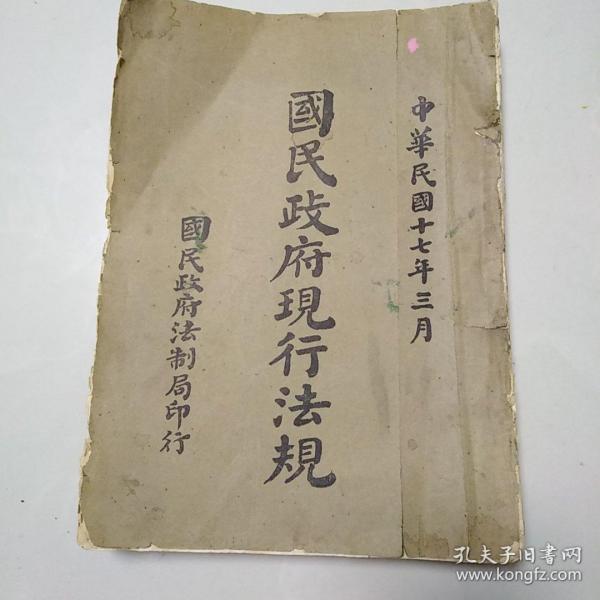 中華民國十七年三月
國民政府現行法規
國民政府法制局印行
孔夫子旧书网
www.kongfz.com